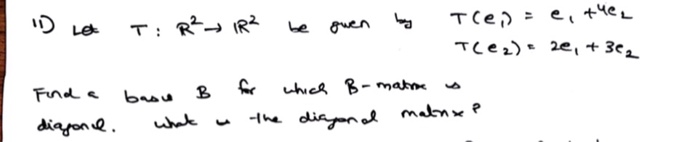 11) Let T: ℝ² → ℝ² be given by T(e₁) = e₁ + 4e₂
T(e₂) = 2e₁ + 3e₂
Find a basis B for which B-matrix is
diagonal. What is the diagonal matrix?